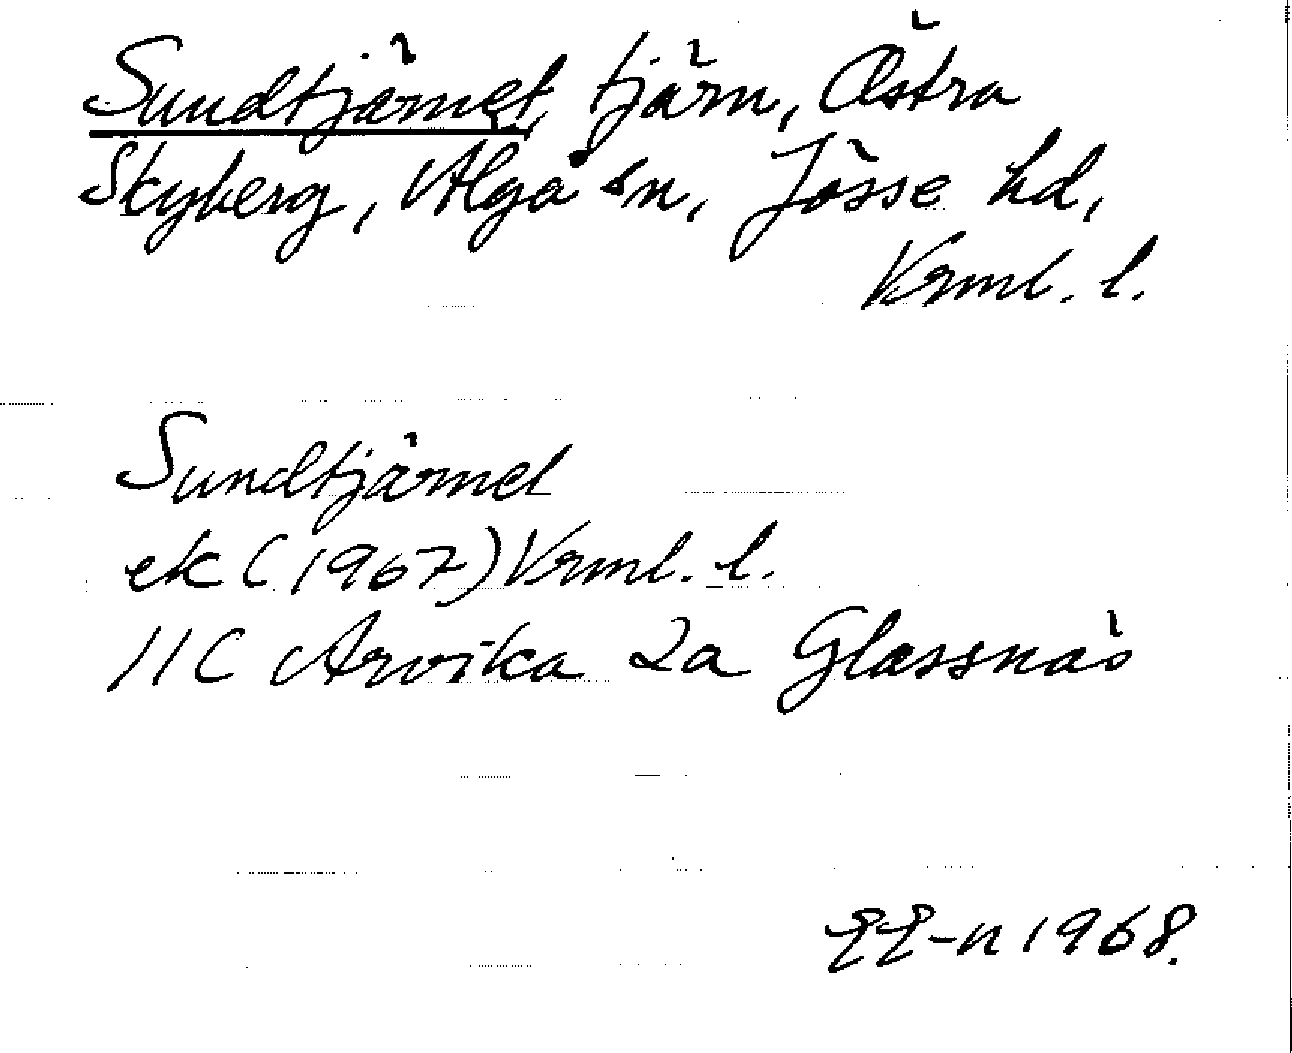 Sundtjärnet, tjärn, Östra
Skyberg, Älgå sn, Jösse hd,
Vrml. l.
Sundtjärnet
ek (1967) Vrml. l.
11C Arvika 2a Glassnäs
EE-n 1968.